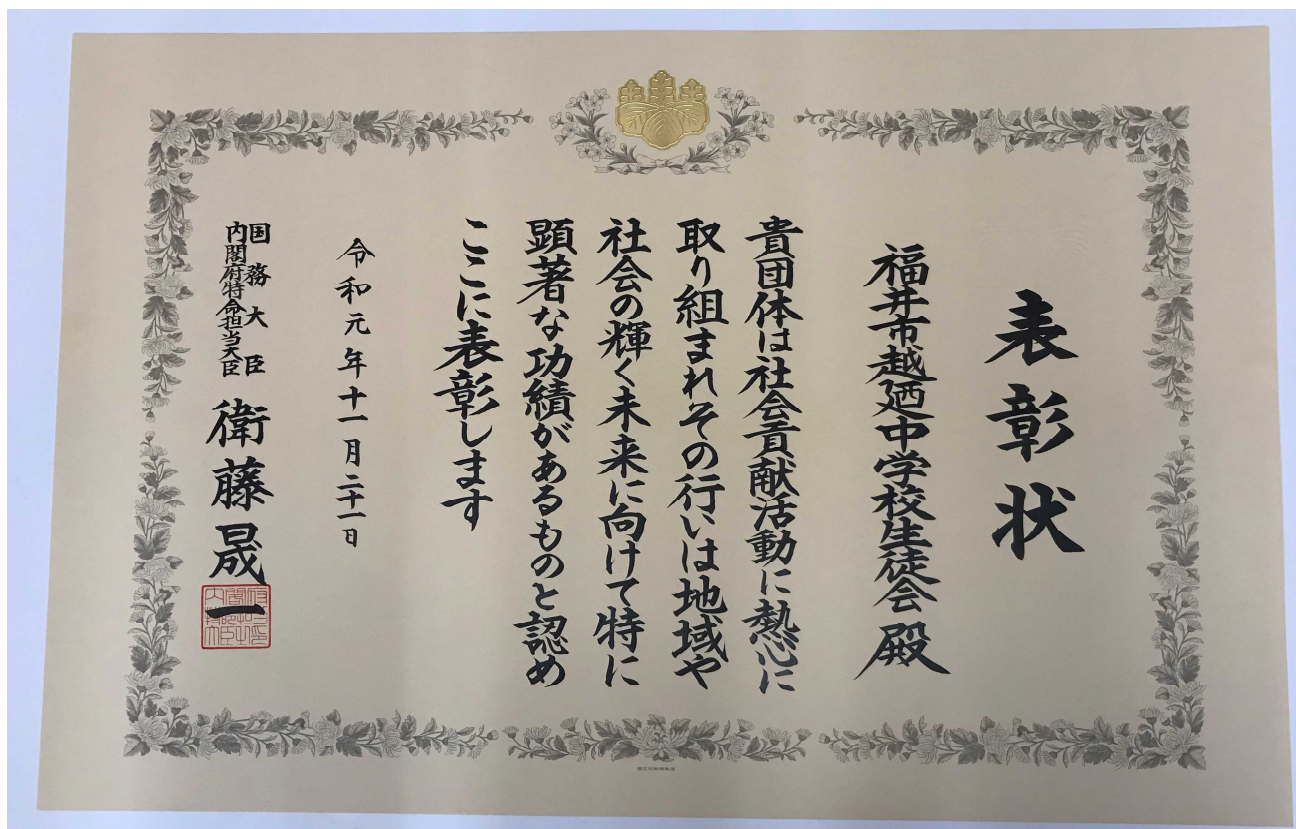 表彰状
福井市越廼中学校生徒会 殿
貴団体は社会貢献活動に熱心に
取り組まれその行いは地域や
社会の輝く未来に向けて特に
顕著な功績があるものと認め
ここに表彰します
令和元年十一月二十一日
国務大臣
内閣府特命担当大臣
衛藤晟一